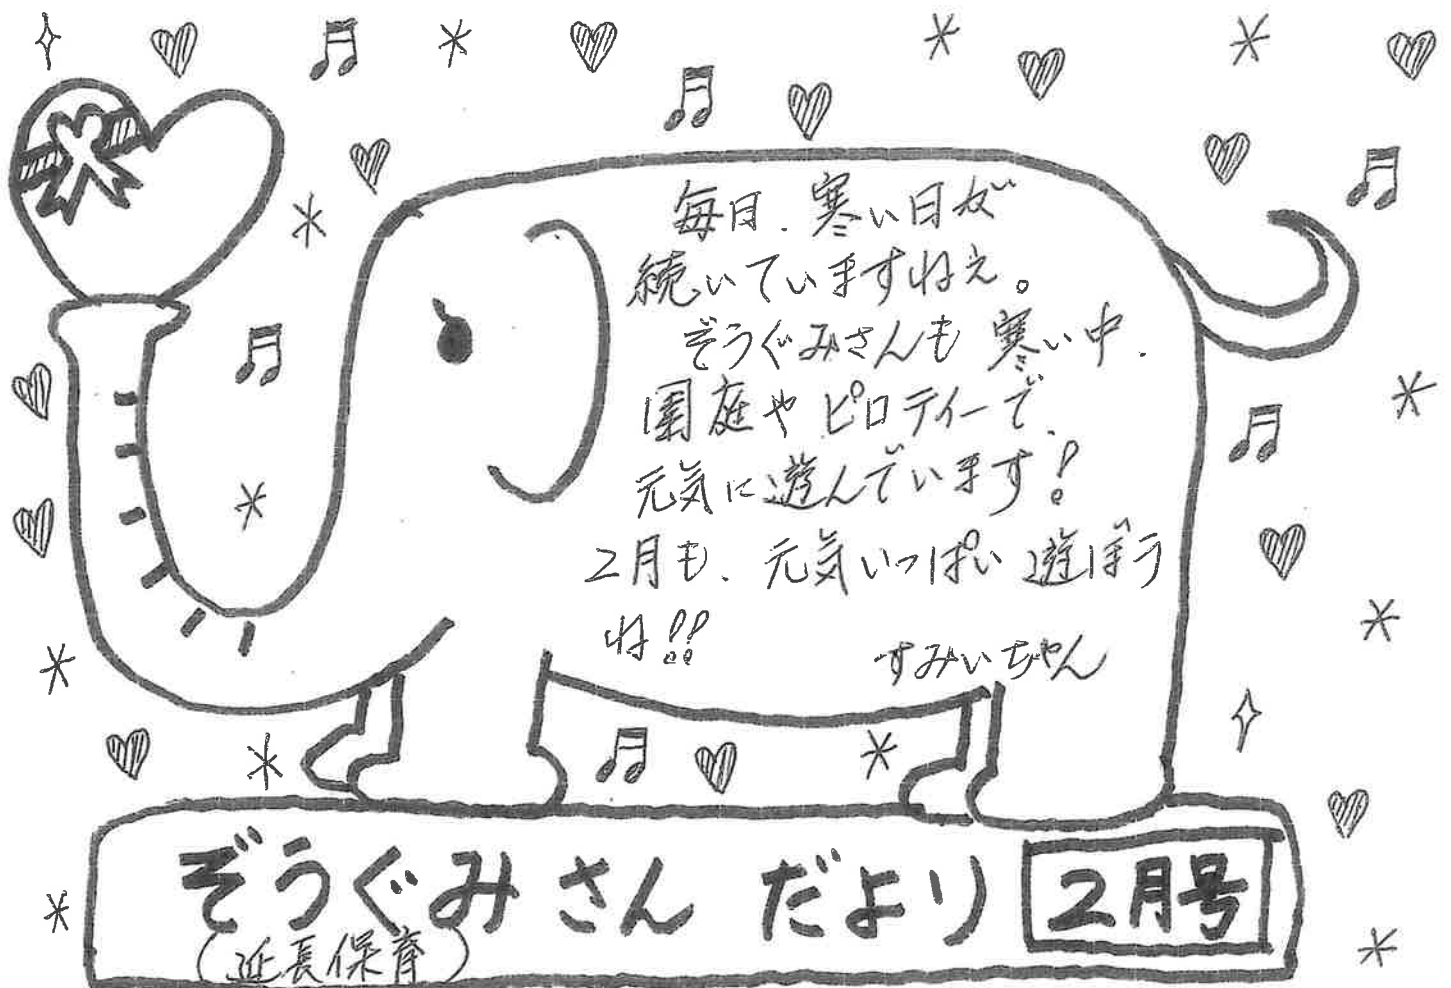 毎日、寒い日が
続いていますねぇ。
ぞうぐみさんも寒い中、
園庭やピロティーで、
元気に遊んでいます!
2月も、元気いっぱい遊ぼう
ね!!
すみいちゃん
ぞうぐみさんだより 2月号
(延長保育)